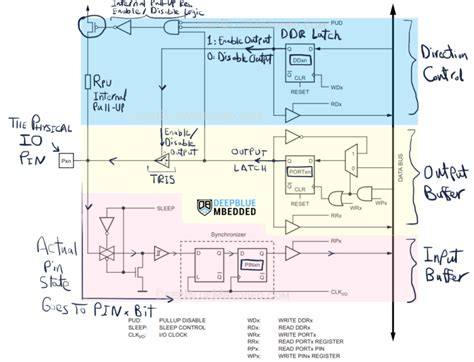 Internal Pull-Up Res
Enable/Disable Logic
PUD
DDR Latch
1: Enable Output
0: Disable Output
Q D
DDxn
Q CLR
RESET
WDx
RDx
Direction
Control
RPU
Internal
Pull-UP
The Physical
IO
PIN
Pxn
Enable/
Disable
TRIS
OUTPUT
LATCH
Q D
PORTxn
Q CLR
RESET
1
0
WPx
WRx
RRx
DATA BUS
Output
Buffer
DEEPBLUE
MBEDDED
SLEEP
Synchronizer
D Q
D Q
PINxn
L Q
Q
RPx
CLK I/O
Input
Buffer
Actual
Pin
State
Goes To PINx Bit
PUD: PULLUP DISABLE
SLEEP: SLEEP CONTROL
CLK I/O: I/O CLOCK
WDx: WRITE DDRx
RDx: READ DDRx
WRx: WRITE PORTx
RRx: READ PORTx REGISTER
RPx: READ PORTx PIN
WPx: WRITE PINx REGISTER